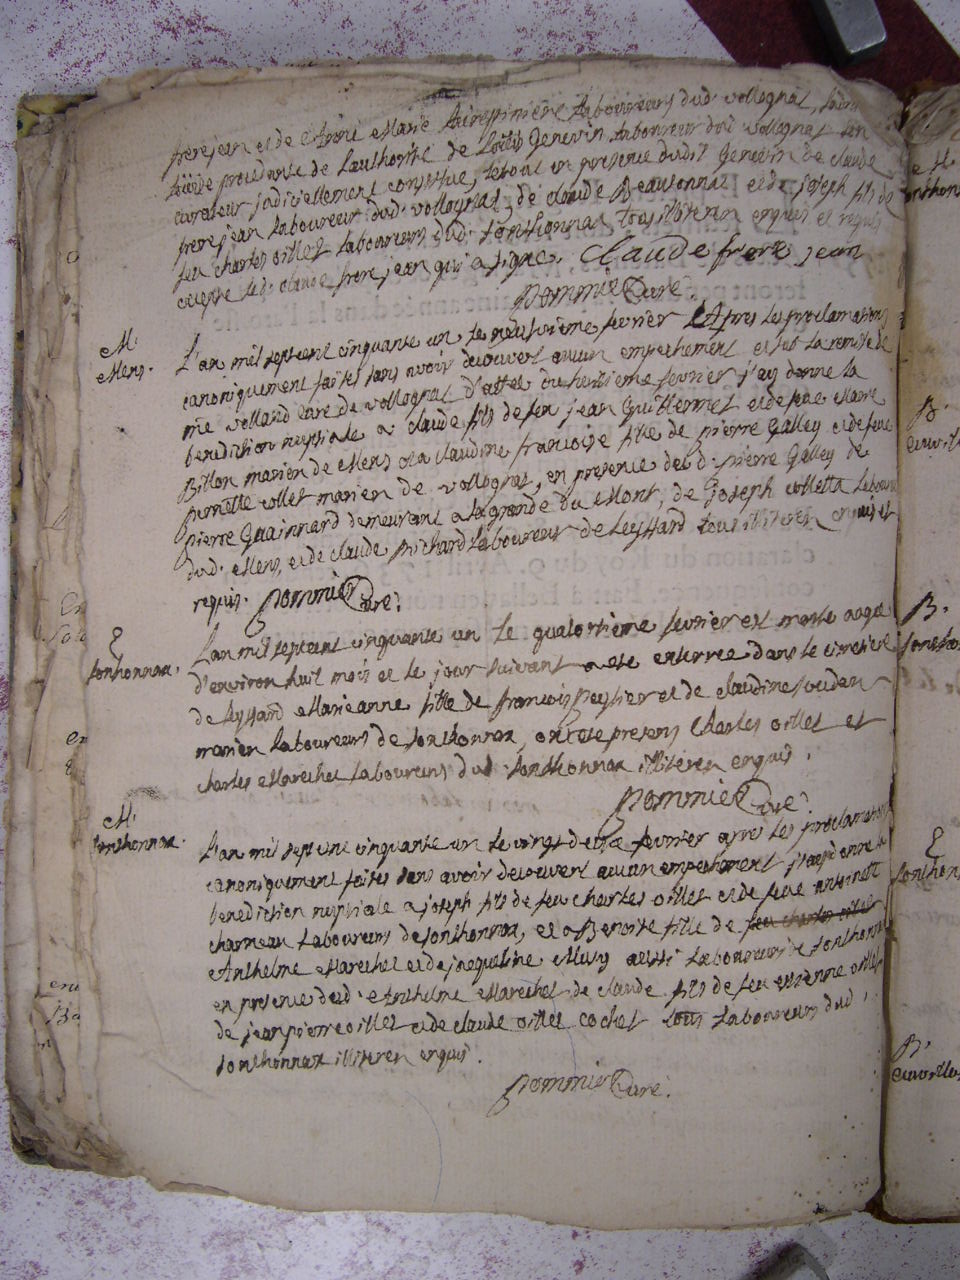 frerejean et de Marie laboureurs dud. vollognat,
procedante de Lauthorité de Louis Genevin Laboureur dud vollognat son
curateur judiciellement constitue, le tout en presence dudit Genevin de claude
frerejean Laboureur dud. vollognat, de claude Beautonnat et de joseph fils de
feu charles oillet Laboureurs dud. sonthonnax tous illiteren enquis et requis
excepte led. claude frere jean qui a signe. Claude frere jean
pommier Curé.
M.
Mens.
L'an mil sept cent cinquante un le neufvieme fevrier Apres les proclamations
canoniquement faites sans avoir decouvert aucun empechement et sur la remise de
mre volland curé de vollognat d'attes du huitieme fevrier j'ay donne la
benediction nuptiale a claude fils de feu jean Guillermet et de feue Marie
Billon marien de Mens et a claudine francoise fille de pierre Galley et de feue
pernette collet marien de vollognat, en presence de d. pierre Galley de
pierre Guainnard demeurant a la grande du Mont, de Joseph colletta Laboureur
dud. Mens, et de claude Richard Laboureur de Leyssard tous illiteren enquis et
requis. pommier Curé.
E
sonthonnax.
Lan mil sept cent cinquante un le quatortieme fevrier est morte aagée
d'environ huit mois et le jour suivant a ete enterree dans le cimetiere
de Leyssard Marieanne fille de francois peysier et de claudine soudan
marien Laboureurs de sonthonnax, ont ete presens Charles oillet et
charles Marechet Laboureurs dud. sonthonnax illiteren enquis.
pommier Curé.
M.
sonthonnax.
Lan mil sept cent cinquante un le vingt deux fevrier apres les proclamations
canoniquement faites sans avoir decouvert aucun empechement j'ay donne la
benediction nuptiale a joseph fils de feu charles oillet et de feue antoinette
charneau Laboureurs de sonthonnax, et a Benoite fille de feu charles oillet
Anthelme Marechet et de jacqueline Missy aussi Laboureurs de sonthonnax
en presence dud. Anthelme Marechet de claude fils de feu estienne oillet
de jeanpierre oillet et de claude oillet cochet tous Laboureurs dud.
sonthonnax illiteren enquis.
pommier Curé.
B.
B.
E
sonthon
B.